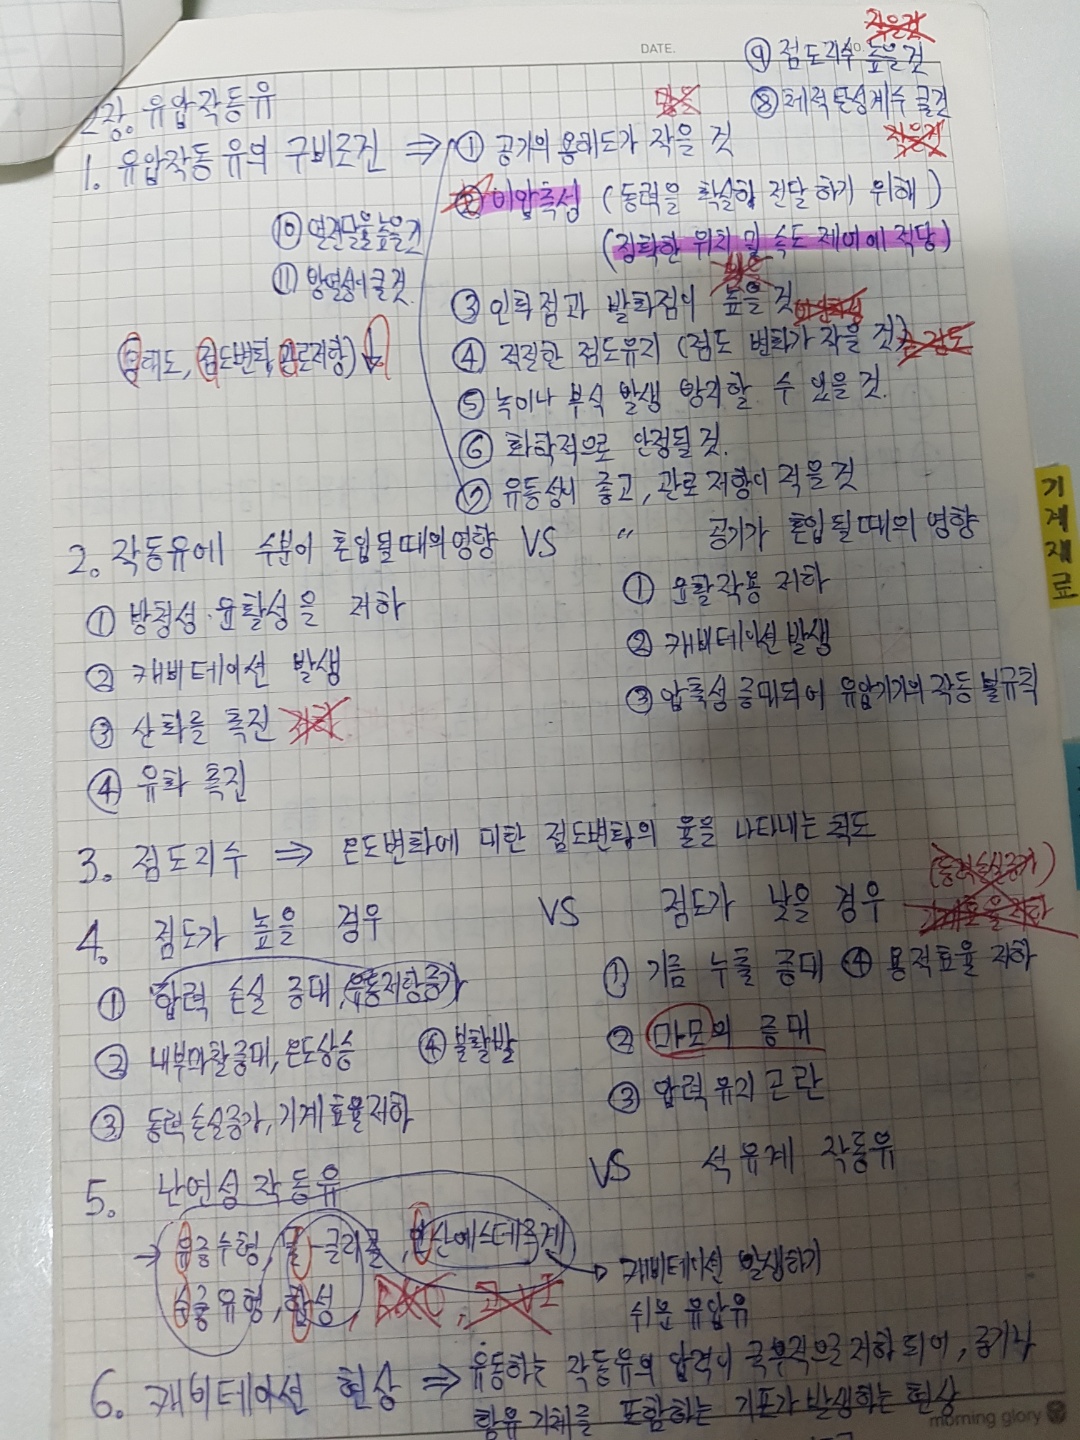 DATE.
NO.
작은것
⑨ 점도지수 높을것
2장. 유압작동유
많은
⑧ 체적탄성계수 클것
작은것
1. 유압작동유의 구비조건 ⇒ ① 공기의 용해도가 작을 것
② 비압축성 (동력을 확실히 전달하기 위해)
(정확한 위치 및 속도 제어에 적당)
⑩ 열전달율 높을것
⑪ 방열성이 클것
낮은
③ 인화점과 발화점이 높을 것
(용해도, 점도변화, 관로저항) ↓
④ 적절한 점도유지 (점도 변화가 작을 것)
⑤ 녹이나 부식 발생 방지할 수 있을 것.
⑥ 화학적으로 안정될 것.
⑦ 유동성이 좋고, 관로저항이 적을 것
기계재료
2. 작동유에 수분이 혼입될때의영향 VS 〃 공기가 혼입될때의 영향
① 방청성·윤활성을 저하
① 윤활작용 저하
② 캐비테이션 발생
② 캐비테이션 발생
③ 산화를 촉진 저하
③ 압축성 증대되어 유압기기의 작동 불규칙
④ 유화 촉진
3. 점도지수 ⇒ 온도변화에 대한 점도변화의 율을 나타내는 척도
(동력손실증가)
기계효율저하
4. 점도가 높을 경우 VS 점도가 낮을 경우
① 압력 손실 증대, 유동저항증가
① 기름 누출 증대 ④ 용적효율 저하
② 내부마찰증대, 온도상승 ④ 불활발
② 마모의 증대
③ 동력손실증가, 기계효율저하
③ 압력 유지 곤란
5. 난연성 작동유 VS 석유계 작동유
→ 유중수형, 물-글리콜, 인산에스테르계
수중유형, 합성,
→ 캐비테이션 발생하기
쉬운 유압유
6. 캐비테이션 현상 ⇒ 유동하는 작동유의 압력이 국부적으로 저하되어, 증기나
함유기체를 포함하는 기포가 발생하는 현상
morning glory